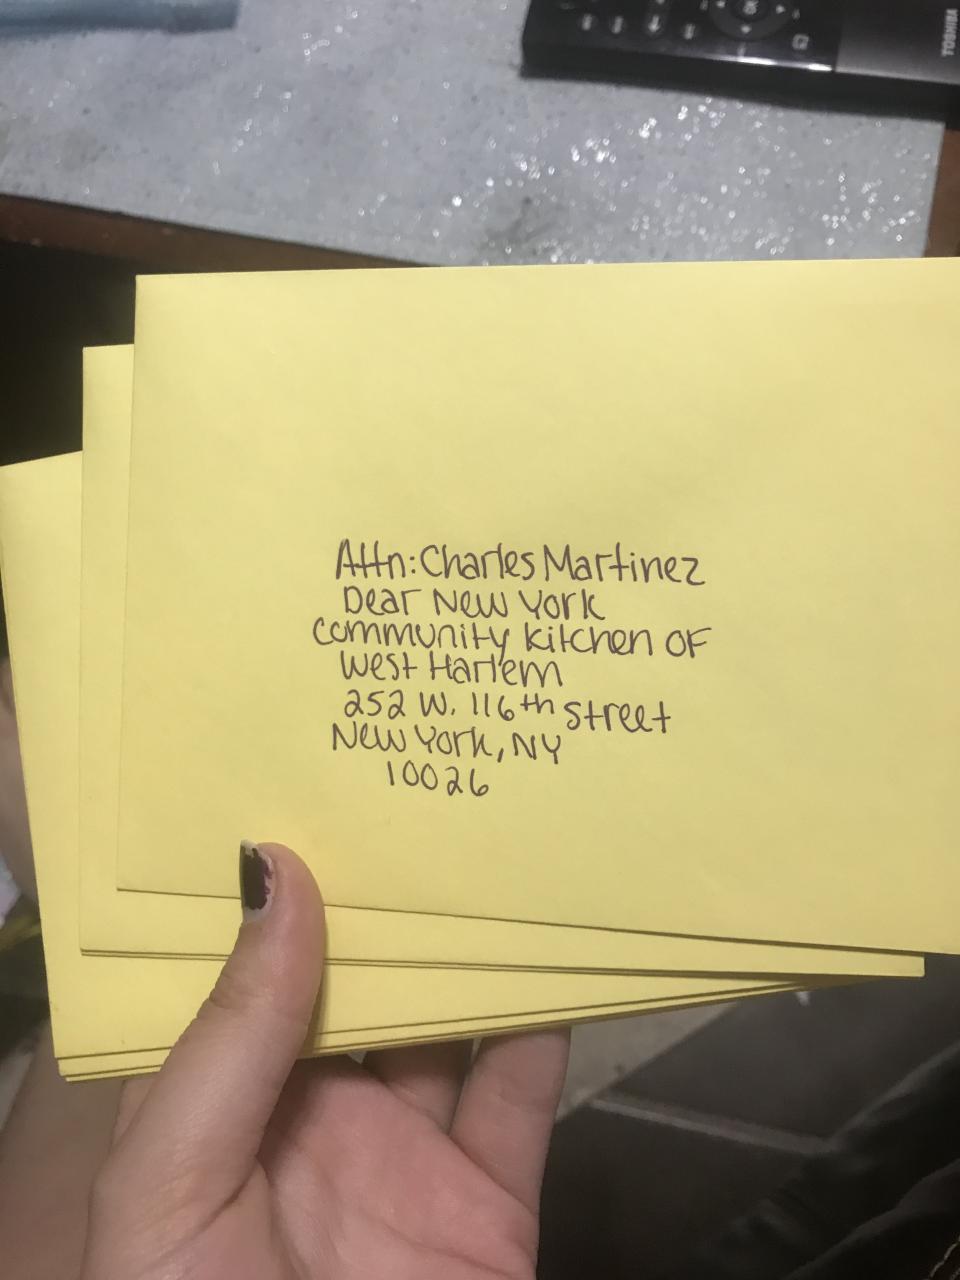 TOSHIBA
OK
Attn: Charles Martinez
Dear New York
Community Kitchen OF
West Harlem
252 W. 116th Street
New York, NY
10026